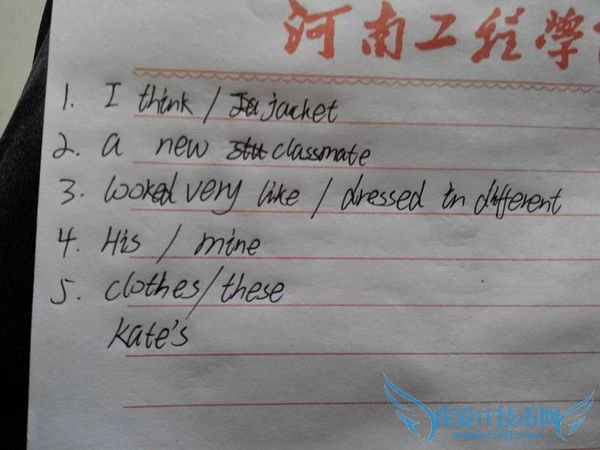 河南工程学
1. I think / jacket
2. a new classmate
3. looked very like / dressed in different
4. His / mine
5. clothes/these
Kate's